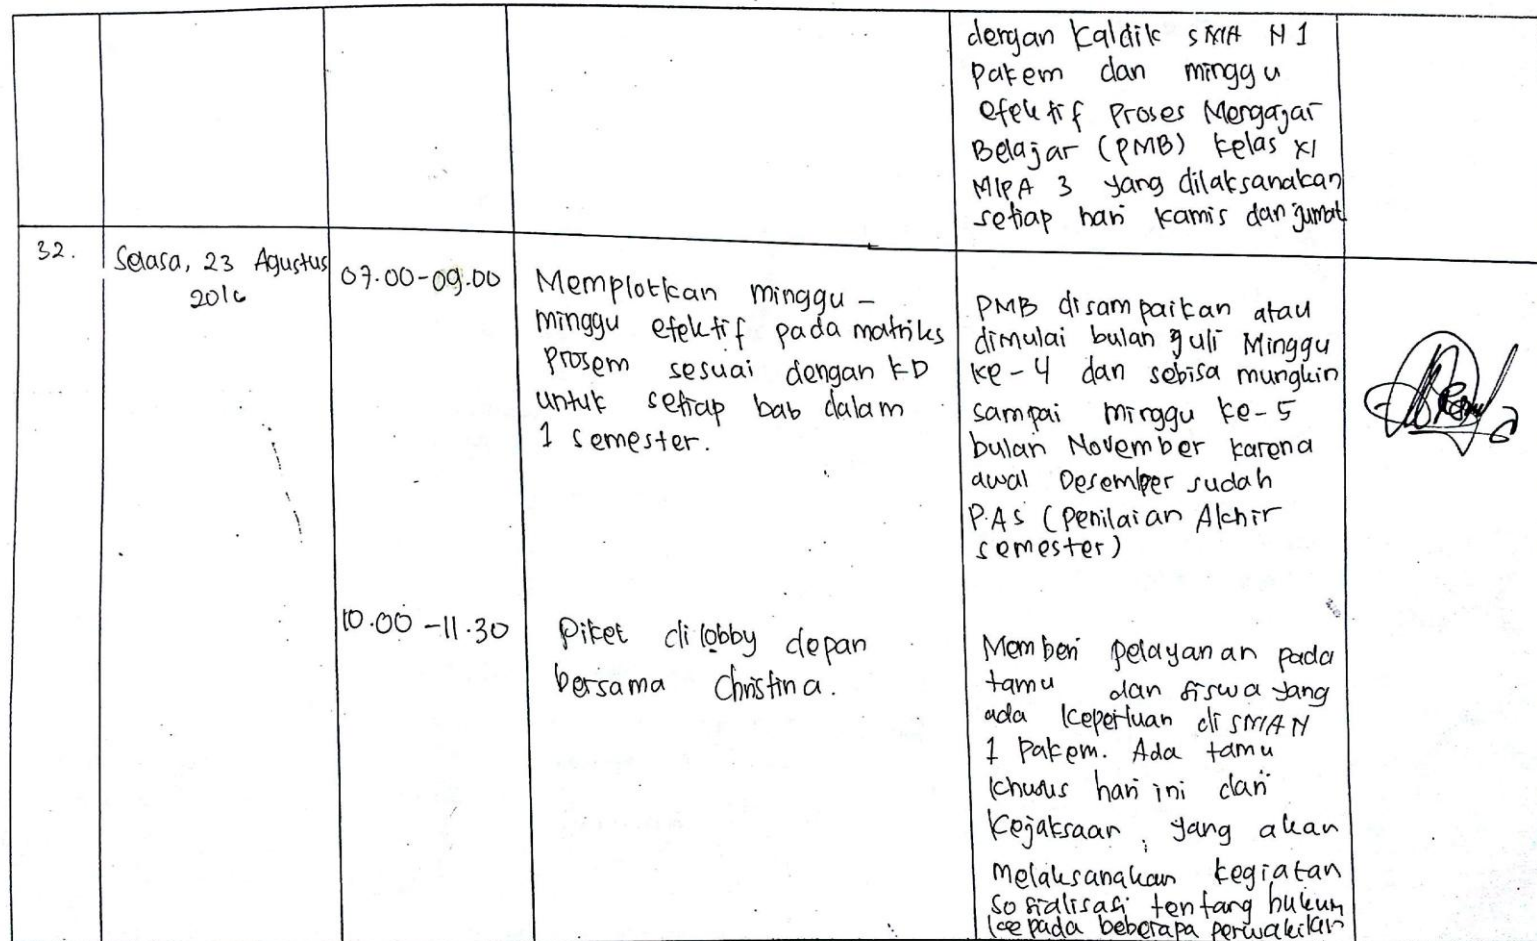 dengan Kaldik SMA N 1
Pakem dan minggu
efektif Proses Mengajar
Belajar (PMB) kelas XI
MIPA 3 yang dilaksanakan
setiap hari kamis dan jumat
32.
Selasa, 23 Agustus
2016
07.00-09.00
Memplotkan minggu-
minggu efektif pada matriks
prosem sesuai dengan KD
untuk setiap bab dalam
1 semester.
PMB disampaikan atau
dimulai bulan Juli Minggu
ke-4 dan sebisa mungkin
sampai minggu ke-5
bulan November karena
awal Desember sudah
P.AS (Penilaian Akhir
semester)
10.00-11.30
Piket di lobby depan
bersama Christina.
Memberi pelayanan pada
tamu dan siswa yang
ada keperluan di SMAN
1 Pakem. Ada tamu
khusus hari ini dari
Kejaksaan, yang akan
melaksanakan kegiatan
sosialisasi tentang hukum
kepada beberapa perwakilan